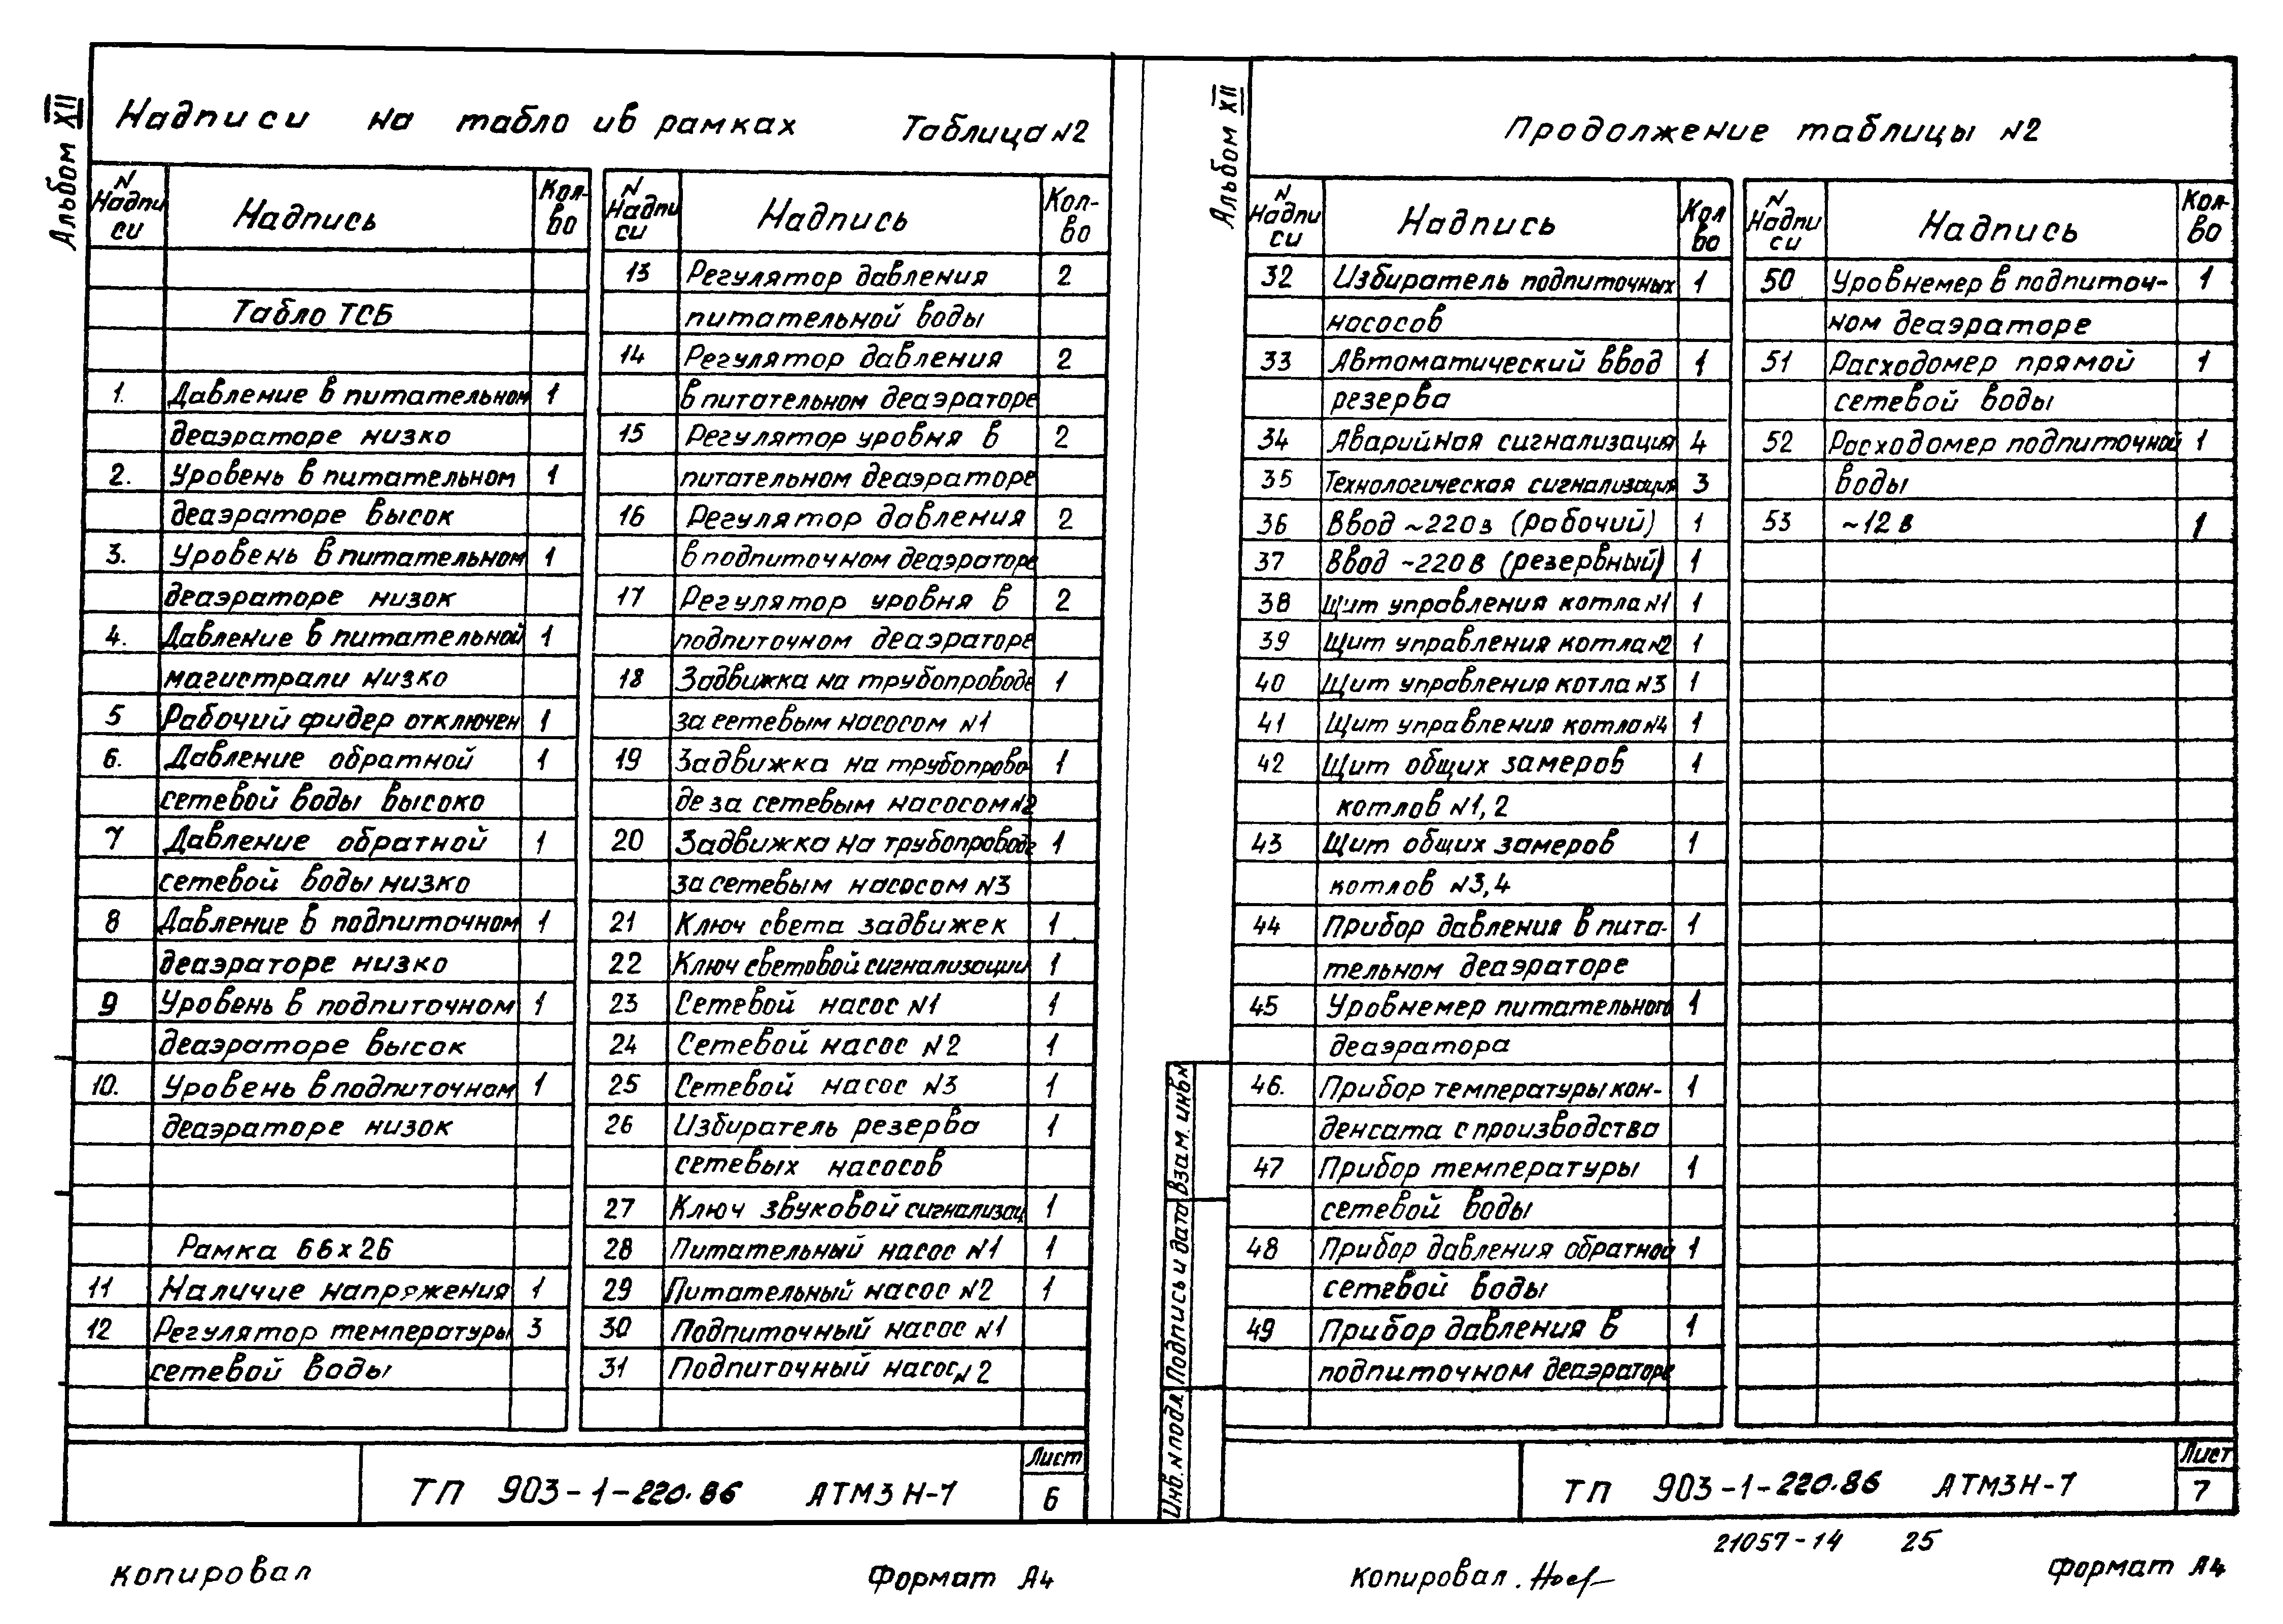 Альбом XII
Надписи на табло и в рамках Таблица N2
N Надписи Надпись Кол-во
Табло ТСБ
1. Давление в питательном 1
деаэраторе низко
2. Уровень в питательном 1
деаэраторе высок
3. Уровень в питательном 1
деаэраторе низок
4. Давление в питательной 1
магистрали низко
5 Рабочий фидер отключен 1
6. Давление обратной 1
сетевой воды высоко
7 Давление обратной 1
сетевой воды низко
8 Давление в подпиточном 1
деаэраторе низко
9 Уровень в подпиточном 1
деаэраторе высок
10. Уровень в подпиточном 1
деаэраторе низок
Рамка 66х26
11 Наличие напряжения 1
12 Регулятор температуры 3
сетевой воды
N Надписи Надпись Кол-во
13 Регулятор давления 2
питательной воды
14 Регулятор давления 2
в питательном деаэраторе
15 Регулятор уровня в 2
питательном деаэраторе
16 Регулятор давления 2
в подпиточном деаэраторе
17 Регулятор уровня в 2
подпиточном деаэраторе
18 Задвижка на трубопроводе 1
за сетевым насосом N1
19 Задвижка на трубопрово- 1
де за сетевым насосом N2
20 Задвижка на трубопроводе 1
за сетевым насосом N3
21 Ключ света задвижек 1
22 Ключ световой сигнализации 1
23 Сетевой насос N1 1
24 Сетевой насос N2 1
25 Сетевой насос N3 1
26 Избиратель резерва 1
сетевых насосов
27 Ключ звуковой сигнализац 1
28 Питательный насос N1 1
29 Питательный насос N2 1
30 Подпиточный насос N1
31 Подпиточный насос N2
ТП 903-1-220.86 АТМ3Н-1
Лист
6
Копировал
Формат А4
Альбом XII
Продолжение таблицы N2
N Надписи Надпись Кол во
32 Избиратель подпиточных 1
насосов
33 Автоматический ввод 1
резерва
34 Аварийная сигнализация 4
35 Технологическая сигнализация 3
36 Ввод ~220в (рабочий) 1
37 Ввод ~220в (резервный) 1
38 Щит управления котла N1 1
39 Щит управления котла N2 1
40 Щит управления котла N3 1
41 Щит управления котла N4 1
42 Щит общих замеров 1
котлов N1,2
43 Щит общих замеров 1
котлов N3,4
44 Прибор давления в пита- 1
тельном деаэраторе
45 Уровнемер питательного 1
деаэратора
46. Прибор температуры кон- 1
денсата с производства
47 Прибор температуры 1
сетевой воды
48 Прибор давления обратной 1
сетевой воды
49 Прибор давления в 1
подпиточном деаэраторе
N Надписи Надпись Кол-во
50 Уровнемер в подпиточ- 1
ном деаэраторе
51 Расходомер прямой 1
сетевой воды
52 Расходомер подпиточной 1
воды
53 ~12в 1
Инв. N подл. Подпись и дата Взам. инв N
ТП 903-1-220.86 АТМ3Н-1
Лист
7
21057-14 25
Копировал.
Формат А4